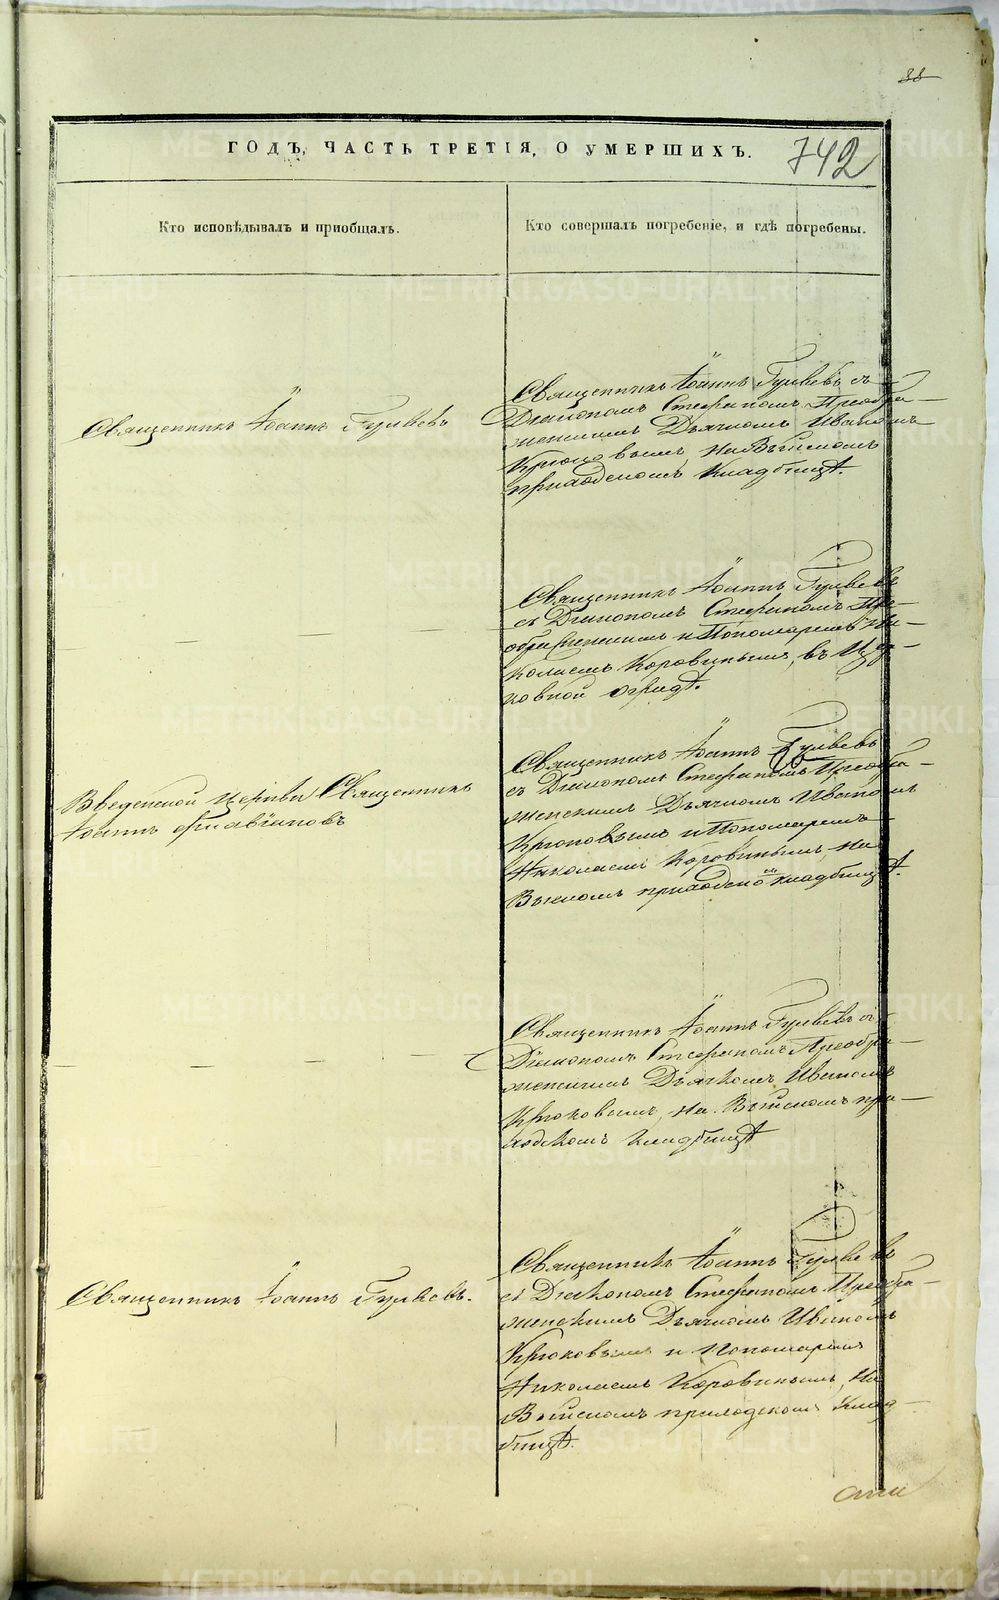 88
ГОДЪ, ЧАСТЬ ТРЕТІЯ, О УМЕРШИХЪ.
742
Кто исповѣдывалъ и пріобщалъ.
Кто совершалъ погребеніе, и гдѣ погребены.
Священникъ Іоаннъ Гуляевъ
Священникъ Іоаннъ Гуляевъ съ
Діакономъ Стефаномъ Преобра-
женскимъ Дьячкомъ Иваномъ
Крюковымъ, на Выйскомъ
приходскомъ кладбищѣ.
Священникъ Іоаннъ Гуляевъ
съ Діакономъ Стефаномъ Пре-
ображенскимъ и Пономаремъ Ни-
колаемъ Коровинымъ, въ Цер-
ковной оградѣ.
Введенской церкви Священникъ
Іоаннъ
Священникъ Іоаннъ Гуляевъ
съ Діакономъ Стефаномъ Преобра-
женскимъ Дьячкомъ Иваномъ
Крюковымъ и Пономаремъ
Николаемъ Коровинымъ, на
Выйскомъ приходско кладбищѣ.
Священникъ Іоаннъ Гуляевъ съ
Діакономъ Стефаномъ Преобра-
женскимъ Дьячкомъ Иваномъ
Крюковымъ, на Выйскомъ при-
ходскомъ кладбищѣ
Священникъ Іоаннъ Гуляевъ.
Священникъ Іоаннъ Гуляевъ
съ Діакономъ Стефаномъ Преобра-
женскимъ Дьячкомъ Иваномъ
Крюковымъ и Пономаремъ
Николаемъ Коровинымъ, на
Выйскомъ приходскомъ клад-
бищѣ.
METRIKI.GASO-URAL.RU